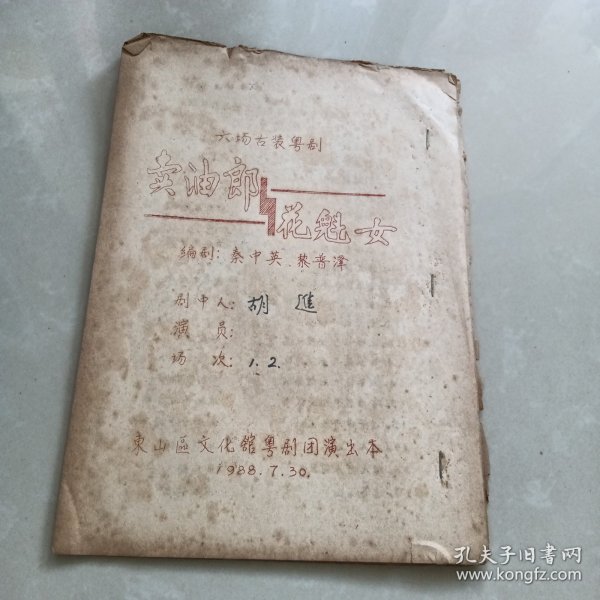 六场古装粤剧
卖油郎
花魁女
编剧：秦中英、黎晋泽
剧中人：胡進
演员：
场次：1.2.
東山區文化館粤剧团演出本
1988.7.30.
孔夫子旧書网
www.kongfz.com